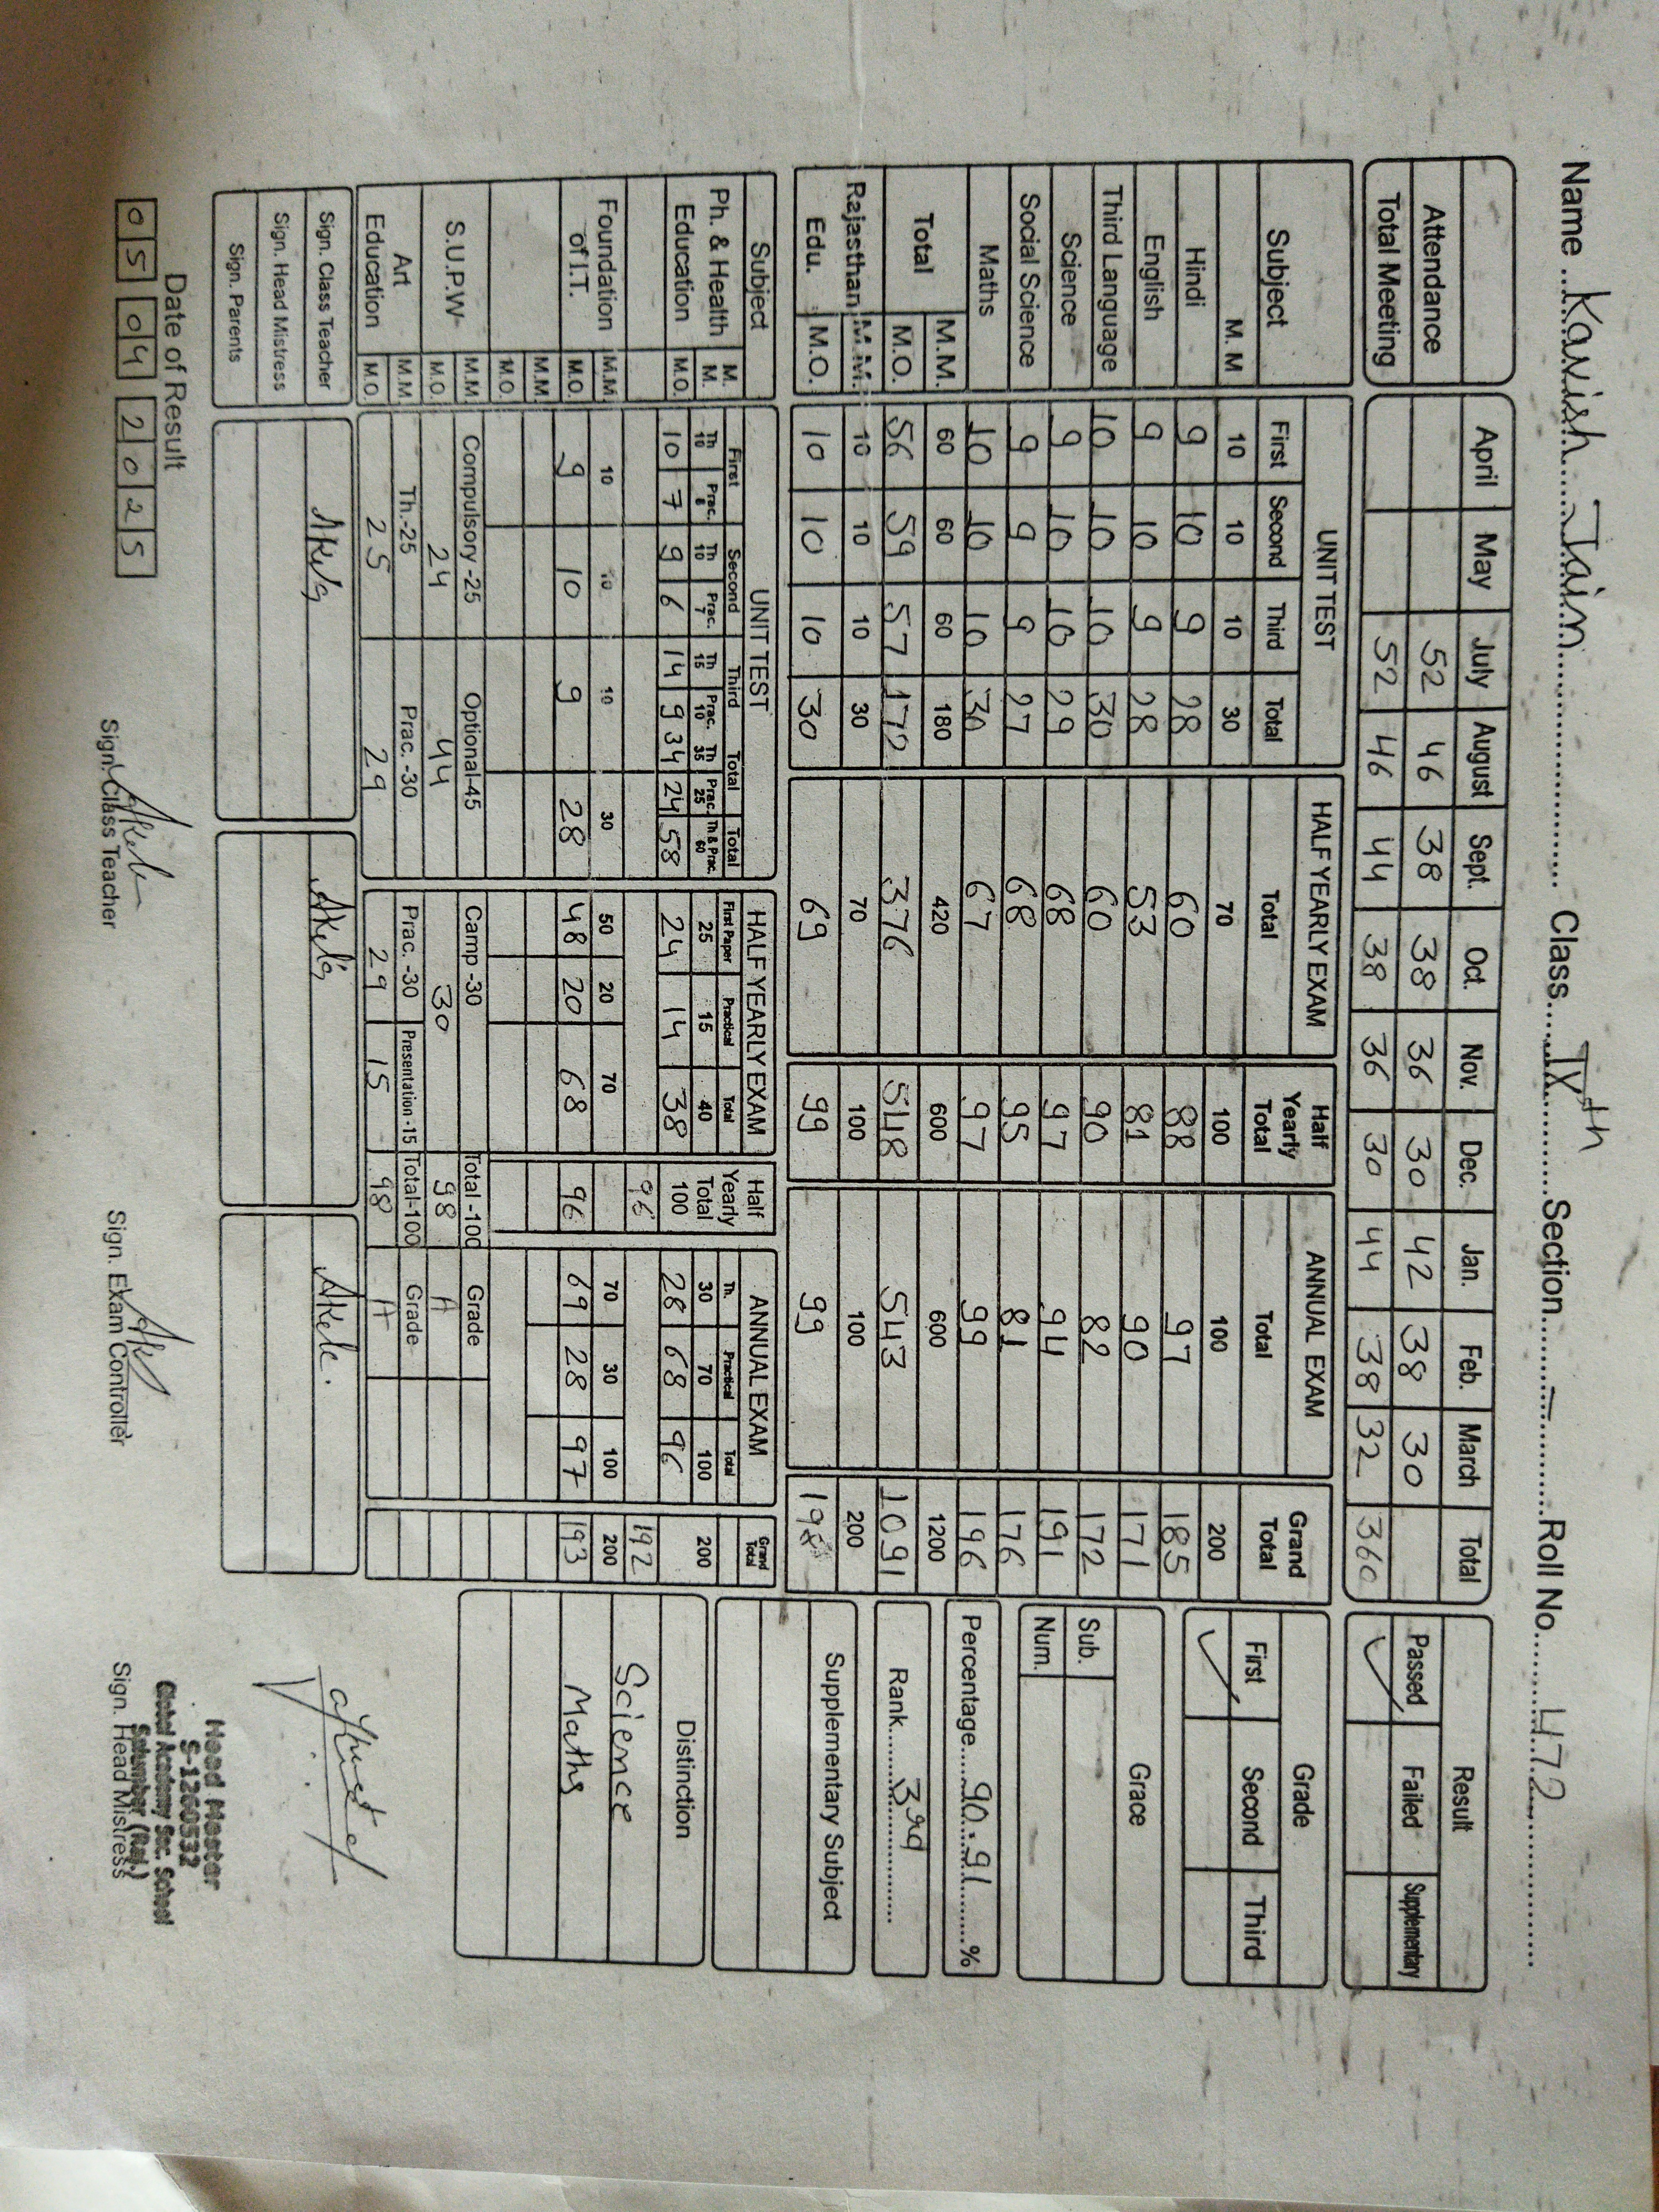 Name ...Kavish...Jain... Class...IXth...Section...–...Roll No...472...
April May July August Sept. Oct. Nov. Dec. Jan. Feb. March Total
Attendance 52 46 38 38 36 30 42 38 30
Total Meeting 52 46 44 38 36 30 44 38 32 360
Result
Passed Failed Supplementary
✓
Subject UNIT TEST HALF YEARLY EXAM Half Yearly Total ANNUAL EXAM Grand Total
First Second Third Total Total Total
M. M 10 10 10 30 70 100 100 200
Hindi 9 10 9 28 60 88 97 185
English 9 10 9 28 53 81 90 171
Third Language 10 10 10 30 60 90 82 172
Science 9 10 10 29 68 97 94 191
Social Science 9 9 9 27 68 95 81 176
Maths 10 10 10 30 67 97 99 196
Total M.M. 60 60 60 180 420 600 600 1200
M.O. 56 59 57 172 376 548 543 1091
Rajasthan Edu. M.M. 10 10 10 30 70 100 100 200
M.O. 10 10 10 30 69 99 99 198
Grade
First Second Third
✓
Grace
Sub.
Num.
Percentage....90.91......%
Rank.......3rd.......
Supplementary Subject
Distinction
Science
Maths
Subject UNIT TEST HALF YEARLY EXAM Half Yearly Total 100 ANNUAL EXAM Grand Total
First Second Third Total Total First Paper Practical Total Th. Practical Total
Ph. & Health Education M. M. Th 10 Prac. 8 Th 10 Prac. 7 Th 15 Prac. 10 Th 35 Prac. 25 Th & Prac. 60 25 15 40 30 70 100 200
M.O. 10 7 9 6 14 9 34 24 58 24 14 38 96 28 68 96 192
Foundation of I.T. M.M. 10 10 10 30 50 20 70 70 30 100 200
M.O. 9 10 9 28 48 20 68 96 69 28 97 193
M.M.
M.O.
S.U.P.W- M.M Compulsory -25 Optional-45 Camp -30 Total -100 Grade
M.O. 24 44 30 98 A
Art Education M.M Th.-25 Prac. -30 Prac. -30 Presentation -15 Total-100 Grade
M.O. 25 29 29 15 98 A
Sign. Class Teacher
Sign. Head Mistress
Sign. Parents
Date of Result
05 04 2025
Sign. Class Teacher
Sign. Exam Controller
Head Master
S-1260532
Global Academy Sec. School
Salumber (Raj.)
Sign. Head Mistress